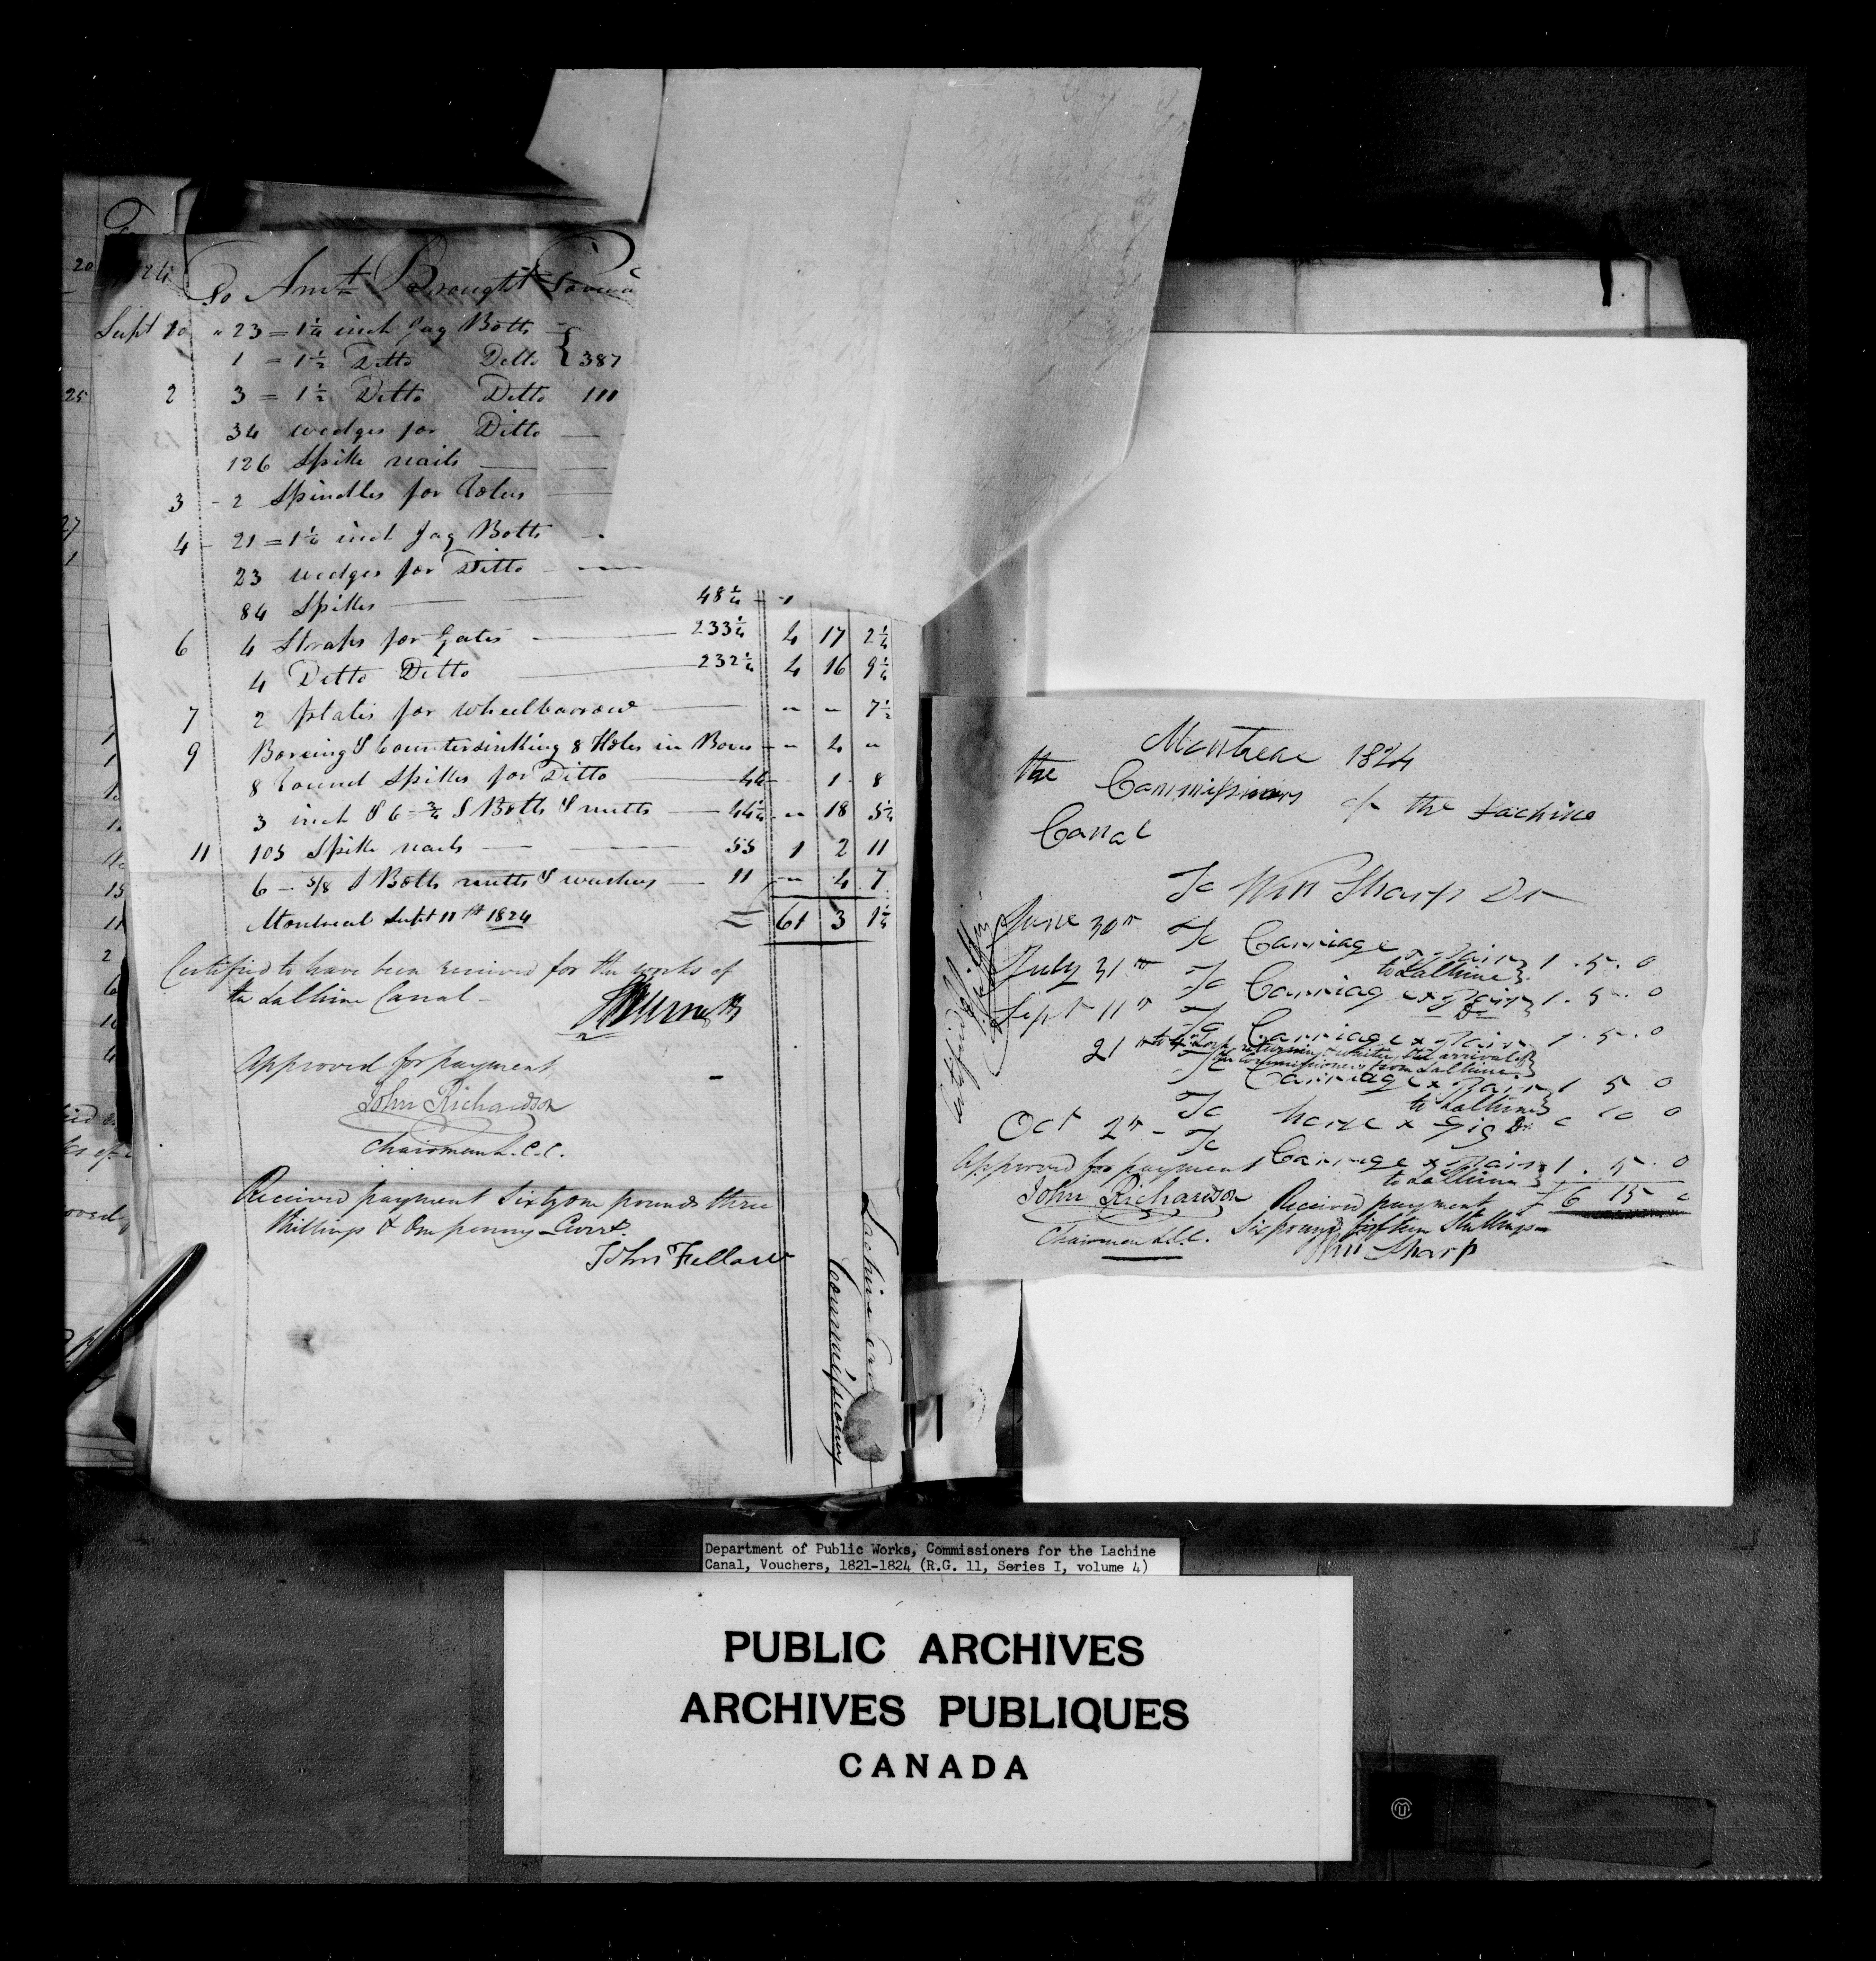 To Amt Brought Forwd
Sept 10 " 23 = 1¼ inch Jag Bolts
1 = 1½ Ditto Ditto } 387
2 3 = 1½ Ditto Ditto 111
34 wedges for Ditto
126 Spike nails
3 - 2 Spindles for
4 - 21 = 1¼ inch Jag Bolts
23 wedges for Ditto
84 Spikes 48¼
6 4 Straps for Gates 233¼ 4 17 2¼
4 Ditto Ditto 232¼ 4 16 9¼
7 2 plates for wheelbarrow " " 7½
9 Boreing & Countersinking 8 Holes in " 4 "
8 Round Spikes for Ditto 44 1 8
3 inch & 6 = ¾ S Bolts & nutts 44¼ " 18 5¼
11 105 Spike nails 55 1 2 11
6 - 5/8 S Bolts nutts & washers 11 " 4 7
Montreal Sept 11th 1824 = 61 3 1¼
Certified to have been received for the works of
the Lachine Canal -
Approved for payment
John Richardson
Chairman L.C.C.
Received payment Sixty one pounds three
Shillings & One penny Curr.
John Fellows
Lachine
Commissioners
Montreal 1824
the Commissioners of the Lachine
Canal
To Wm Sharp Dr
June 30th To Carriage & Pair to Lachine } 1 . 5 . 0
July 31st To Carriage & Pair Do } 1 . 5 . 0
Sept 11th To Carriage & Pair 1 . 5 . 0
returning & waiting the arrival of
the Commissioners from Lachine }
21st To Carriage & Pair to Lachine } 1 5 0
To horse & Gig Do 0 10 0
Oct 2nd - To Carriage & Pair to Lachine } 1 . 5 . 0
£ 6 15 0
Approved for payment
John Richardson
Chairman L.C.C.
Received payment
Six pounds fifteen Shillings
Wm Sharp
Department of Public Works, Commissioners for the Lachine
Canal, Vouchers, 1821-1824 (R.G. 11, Series I, volume 4)
PUBLIC ARCHIVES
ARCHIVES PUBLIQUES
CANADA